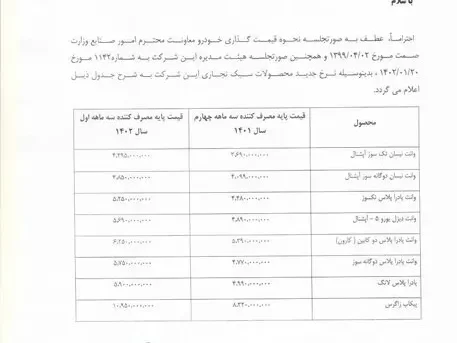 با سلام
احتراماً، عطف به صورتجلسه نحوه قیمت گذاری خودرو معاونت محترم امور صنایع وزارت
صمت مورخ ۱۳۹۹/۰۴/۰۲ و همچنین صورتجلسه هیئت مدیره این شرکت به شماره ۱۱۴۲ مورخ
۱۴۰۲/۰۱/۲۰ ، بدینوسیله نرخ جدید محصولات سبک تجاری این شرکت به شرح جدول ذیل
اعلام می گردد.
محصول قیمت پایه مصرف کننده سه ماهه چهارم سال ۱۴۰۱ قیمت پایه مصرف کننده سه ماهه اول سال ۱۴۰۲
وانت نیسان تک سوز آپشنال ۳،۶۹۰،۰۰۰،۰۰۰ ۴،۲۹۵،۰۰۰،۰۰۰
وانت نیسان دوگانه سوز آپشنال ۴،۰۹۹،۰۰۰،۰۰۰ ۴،۸۵۰،۰۰۰،۰۰۰
وانت پادرا پلاس تکسوز ۴،۴۸۰،۰۰۰،۰۰۰ ۵،۲۵۰،۰۰۰،۰۰۰
وانت دیزل یورو ۵ - آپشنال ۴،۸۹۰،۰۰۰،۰۰۰ ۵،۶۹۰،۰۰۰،۰۰۰
وانت پادرا پلاس دو کابین ( کارون) ۵،۳۹۰،۰۰۰،۰۰۰ ۶،۲۵۰،۰۰۰،۰۰۰
وانت پادرا پلاس دوگانه سوز ۴،۷۷۰،۰۰۰،۰۰۰ ۵،۷۵۰،۰۰۰،۰۰۰
پادرا پلاس لانگ ۴،۹۹۰،۰۰۰،۰۰۰ ۵،۹۰۰،۰۰۰،۰۰۰
پیکاپ زاگرس ۸،۲۳۰،۰۰۰،۰۰۰ ۱۰،۹۵۰،۰۰۰،۰۰۰